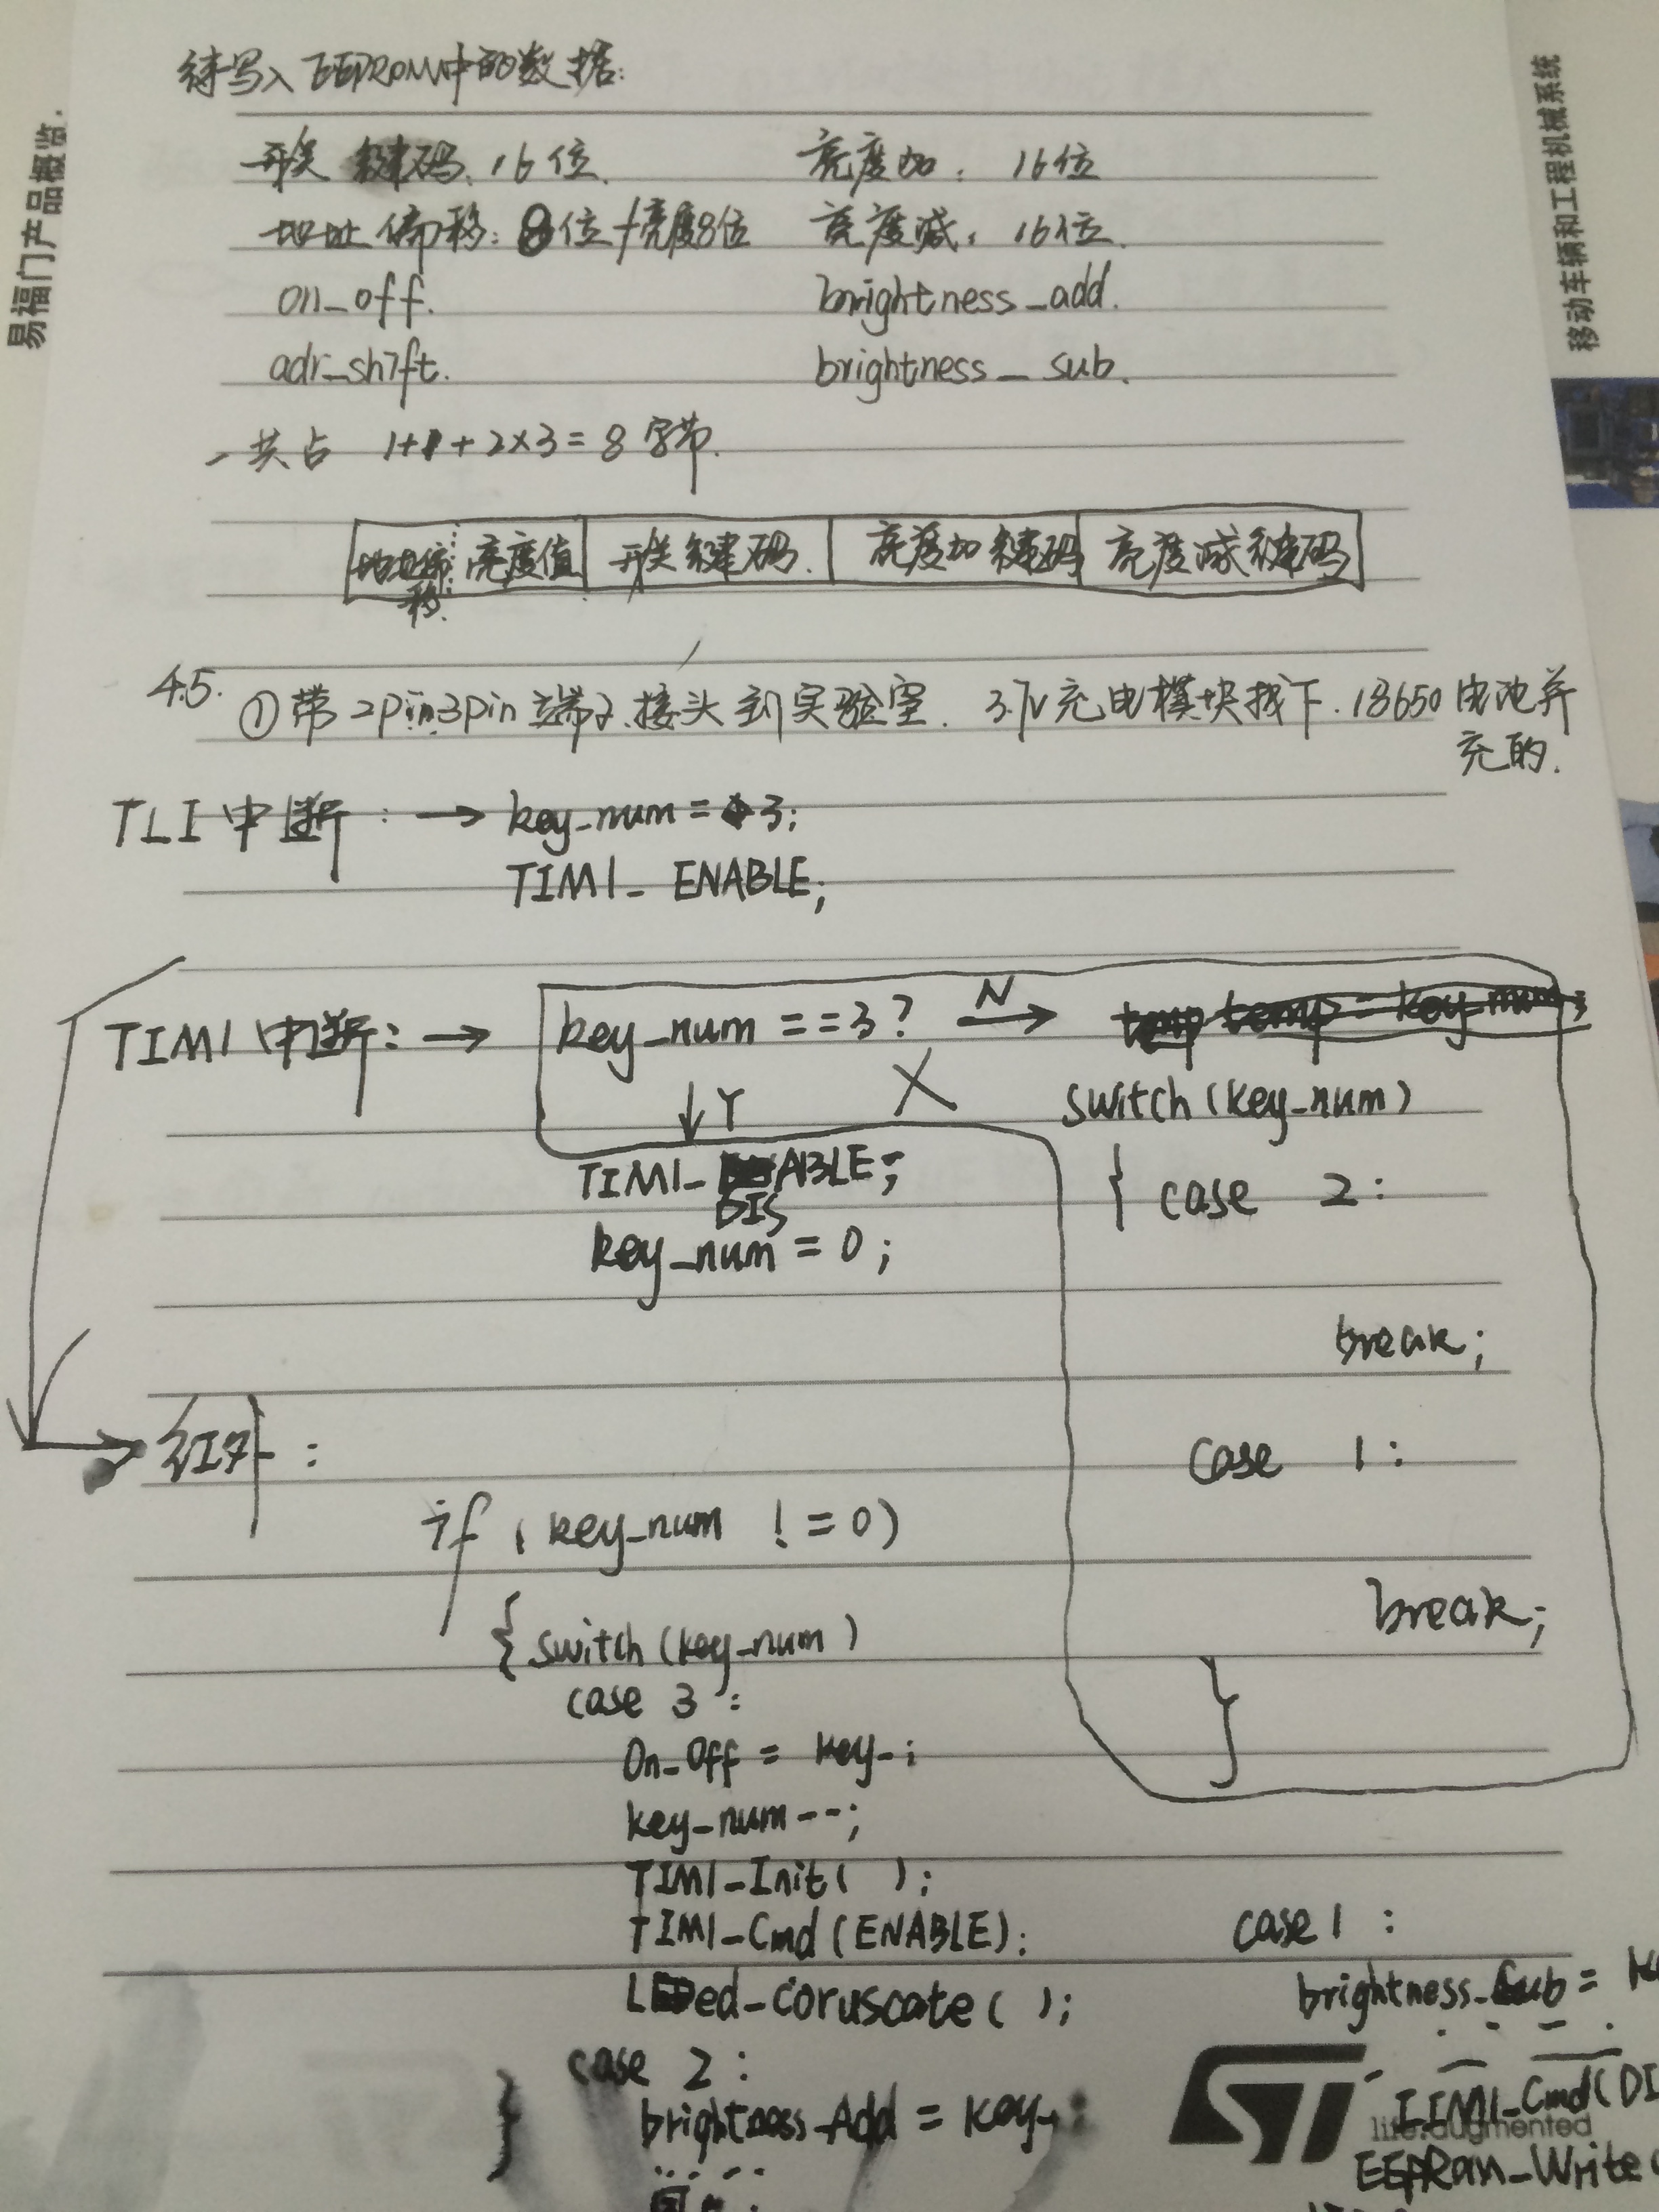 待写入EEPROM中的数据:
开关键码: 16位.
亮度加: 16位
地址偏移: 8位+亮度8位
亮度减: 16位.
on_off.
brightness_add.
adr_shift.
brightness_sub.
一共占 1+1+2×3=8字节.
地址偏移 亮度值 开关键码. 亮度加键码 亮度减键码
4.5. ①带2pin 3pin端子接头到实验室. 3.7V充电模块找下. 18650电池并
充的.
TLI中断: → key_num=3;
TIM1_ENABLE;
TIM1中断: → key_num==3? N →
↓Y
X
switch(key_num)
TIM1_DISABLE;
{ case 2:
key_num=0;
break;
红外:
case 1:
if(key_num !=0)
break;
{switch(key_num)
}
case 3:
On_Off = key_;
key_num--;
TIM1_Init( );
TIM1_Cmd(ENABLE);
case 1:
Led_coruscate( );
brightness_Sub=
case 2:
TIM1_Cmd(DI
} brightness_Add = key_;
ST
life.augmented
EEPRom_Write(
易福门产品概览.
移动车辆和工程机械系统